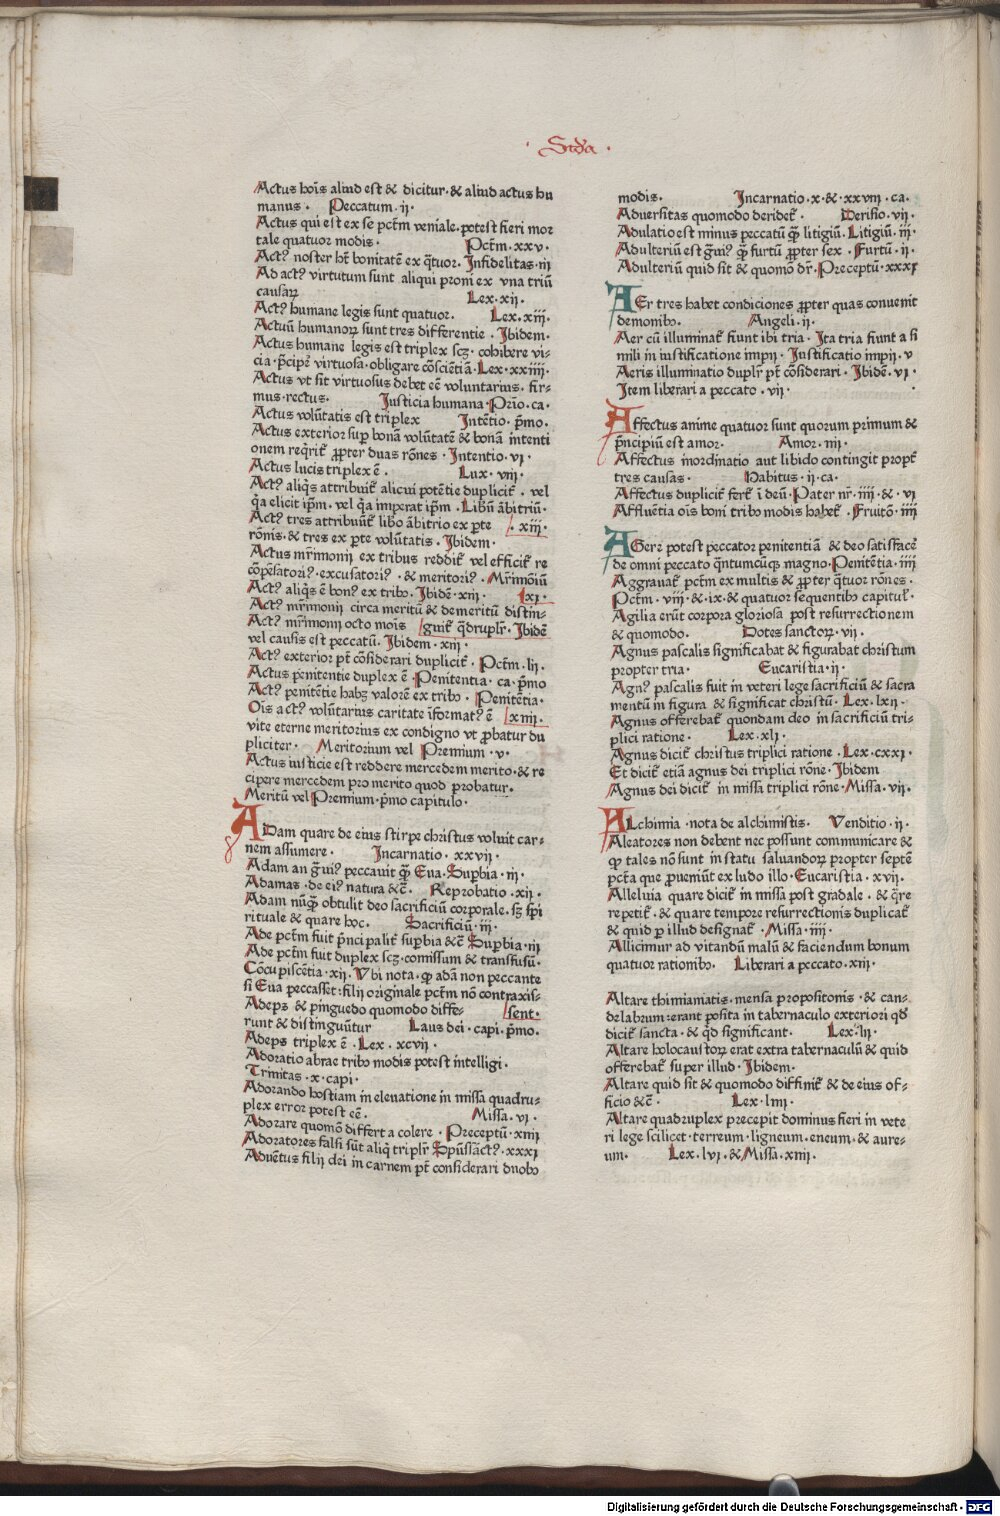 · Secūda ·
Actus hōis aliud est & dicitur · & aliud actus hu
manus · Peccatum · ij ·
Actus qui est ex se pctm̄ veniale · potest fieri mor
tale quatuor modis · Pctm̄ · xxv ·
Actꝰ noster ht̄ bonitatē ex q̄tuor · Infidelitas · iij
Ad actꝰ virtutum sunt aliqui proni ex vna triū
causaꝝ Lex · xij ·
Actꝰ humane legis sunt quatuor · Lex · xiij ·
Actuū humanoꝝ sunt tres differentie · Ibidem ·
Actus humane legis est triplex scꝫ · cohibere vi-
cia · p̄cipe virtuosa · obligare cōsciētiā · Lex · xxiiij ·
Actus vt sit virtuosus debet eē voluntarius · fir-
mus · rectus · Iusticia humana · Prīo · ca ·
Actus volūtatis est triplex Intētio · p̄mo ·
Actus exterior sup̱ bonā volūtatē & bonā intenti
onem reqͥrit̄ ꝓpter duas rōnes · Intentio · vj ·
Actus lucis triplex ē · Lux · viij ·
Actꝰ aliqͥs attribuit̄ alicui potētie duplicit̄ · vel
qͥa elicit ip̄m · vel qͥa imperat ip̄m · Libū ābitriū ·
Actꝰ tres attribuūt̄ libo ābitrio ex p̱te · xiij ·
rōnis · & tres ex p̱te volūtatis · Ibidem ·
Actus mr̄imonij ex tribus reddit̄ vel efficit̄ re
cōpēsatoriꝰ · excusatoriꝰ · & meritoriꝰ · Mr̄imōiū
Actꝰ aliqͥs ē bonꝰ ex tribꝫ · Ibidē · xij · xj ·
Actꝰ mr̄imonij circa meritū & demeritū distin-
Actꝰ mr̄imonij octo mōis guit̄ q̄druplr̄ · Ibidē
vel causis est peccatū · Ibidem · xiij ·
Actꝰ exterior pt̄ cōsiderari duplicit̄ · Pctm̄ · lij ·
Actus penitentie duplex ē · Penitentia · ca · p̄mo
Actꝰ penitētie habꝫ valorē ex tribꝫ · Penitētia ·
Oīs actꝰ volūtarius caritate īformatꝰ ē xiiij ·
vite eterne meritorius ex condigno vt ꝓbatur du
pliciter · Meritorium vel Premium · v ·
Actus iusticie est reddere mercedem merito · & re
cipere mercedem pro merito quod probatur ·
Meritū vel Premium · p̄mo capitulo ·
ADam quare de eius stirpe christus voluit car-
nem assumere · Incarnatio · xxvij ·
Adam an gͣuiꝰ peccauit qͣꝫ Eua · Suꝑbia · iij ·
Adamas · de eiꝰ natura &c̄ · Reprobatio · xij ·
Adam nūqͣꝫ obtulit deo sacrificiū corporale · sꝫ spī
rituale & quare hoc · Sacrificiū · iij ·
Ade pctm̄ fuit p̄ncipalit̄ suꝑbia &c̄ Suꝑbia · iij
Ade pctm̄ fuit duplex scꝫ · comissum & transfusū ·
Cōcupiscētia · xij · Vbi nota · ꝙ adā non peccante
si Eua peccasset : filij originale pctm̄ nō contraxis-
Adeps & pinguedo quomodo diffe- sent ·
runt & distinguūtur Laus dei · capi · p̄mo ·
Adeps triplex ē · Lex · xcvij ·
Adoratio abrae tribꝫ modis potest intelligi ·
Trinitas · x · capi ·
Adorando hostiam in eleuatione in missa quadru-
plex error potest eē · Missa · vj ·
Adorare quomō differt a colere · Preceptū · xiiij
Adoratores falsi sūt aliqͥ triplr̄ Sp̄ūssāctꝰ · xxxj
Aduētus filij dei in carnem pt̄ considerari duobꝫ
modis · Incarnatio · x · & · xxviij · ca ·
Aduersitas quomodo deridet̄ · Derisio · vij ·
Adulatio est minus peccatū qͣꝫ litigiū · Litigiū · iij ·
Adulteriū est gͣuiꝰ qͣꝫ furtū ꝓpter sex · Furtū · ij ·
Adulteriū quid sit & quomō dr̄ · Preceptū · xxxj
AEr tres habet condiciones ꝓpter quas conuenit
demonibꝫ · Angeli · ij ·
Aer cū illuminat̄ fiunt ibi tria · Ita tria fiunt a si
mili in iustificatione impij · Iustificatio impij · v
Aeris illuminatio duplr̄ pt̄ cōsiderari · Ibidē · vj ·
Item liberari a peccato · vij ·
Affectus anime quatuor sunt quorum primum &
p̄ncipiū est amor · Amor · iiij ·
Affectus inordinatio aut libido contingit propt̄
tres causas · Habitus · ij · ca ·
Affectus duplicit̄ fert̄ ī deū · Pater nr̄ · iiij · & · vj
Affluētia oīs boni tribꝫ modis habet̄ · Fruitō · iiij
AGere potest peccator penitentiā & deo satisfacē
de omni peccato qͣntumcūqꝫ magno · Penitētia · iiij
Aggrauat̄ pctm̄ ex multis & ꝓpter q̄tuor rōnes ·
Pctm̄ · viij · & · ix · & quatuor sequentibꝫ capitul̄ ·
Agilia erūt corpora gloriosa post resurrectionem
& quomodo · Dotes sanctoꝝ · vij ·
Agnus pascalis significabat & figurabat christum
propter tria · Eucaristia · ij ·
Agnꝰ pascalis fuit in veteri lege sacrificiū & sacra
mentū in figura & significat christū · Lex · lxij ·
Agnus offerebat̄ quondam deo in sacrificiū tri-
plici ratione · Lex · xlj ·
Agnus dicit̄ christus triplici ratione · Lex · cxxj ·
Et dicit̄ etiā agnus dei triplici rōne · Ibidem
Agnus dei dicit̄ in missa triplici rōne · Missa · vij ·
ALchimia · nota de alchimistis · Venditio · ij ·
Aleatores non debent nec possunt communicare &
ꝙ tales nō sunt in statu saluandoꝝ propter septē
pctā que ꝓueniūt ex ludo illo · Eucaristia · xvij ·
Alleluia quare dicit̄ in missa post gradale · & qͣre
repetit̄ · & quare tempore resurrectionis duplicat̄
& quid ꝑ illud designat̄ · Missa · iiij ·
Allicimur ad vitandū malū & faciendum bonum
quatuor rationibꝫ · Liberari a peccato · xiij ·
Altare thimiamatis · mensa propositionis · & can-
delabrum : erant posita in tabernaculo exteriori qd̄
dicit̄ sancta · & qͥd significant · Lex · lij ·
Altare holocaustoꝝ erat extra tabernaculū & quid
offerebat̄ super illud · Ibidem ·
Altare quid sit & quomodo diffinit̄ & de eius of-
ficio &c̄ · Lex · liiij ·
Altare quadruplex precepit dominus fieri in vete
ri lege scilicet · terreum · ligneum · eneum · & aure-
um · Lex · lvj · & Missa · xiiij ·
Digitalisierung gefördert durch die Deutsche Forschungsgemeinschaft - DFG